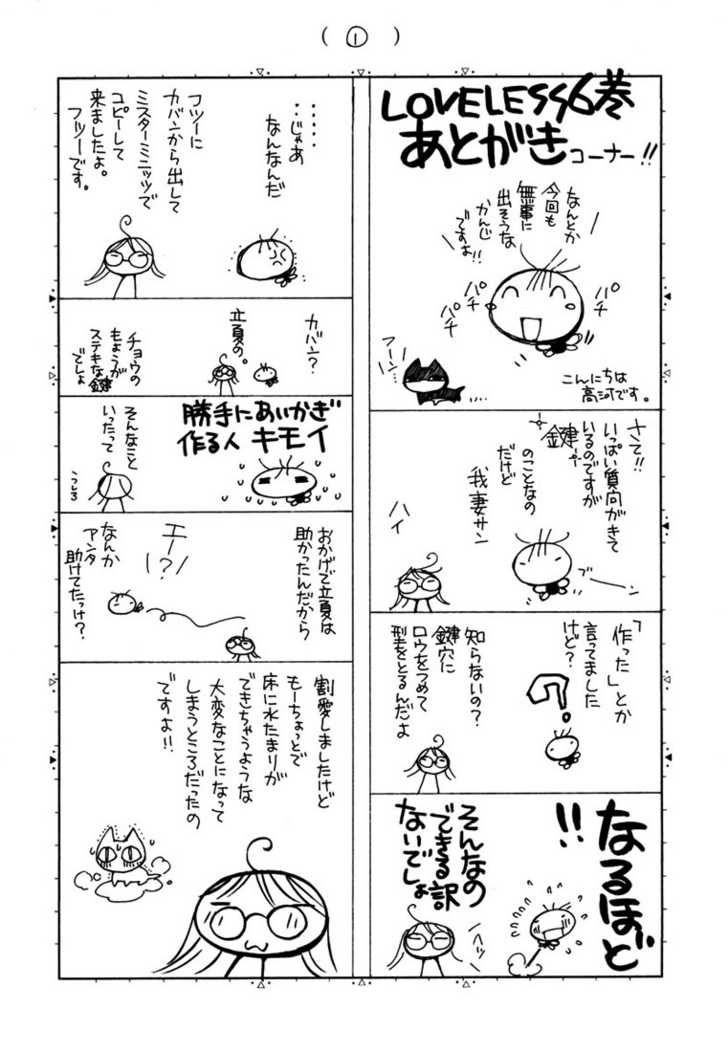 (1)
LOVELESS6巻
あとがきコーナー!!
なんとか
今回も
無事に
出そうな
かんじ
ですよ!!
パチ
パチ
パチ
パチ
フーン…
こんにちは
高河です。
さて!!
いっぱい質問がきて
いるのですが
鍵
のことなの
だけど
我妻サン
ブーン
ハイ
「作った」とか
言ってました
けど?
?
知らないの?
鍵穴に
ロウをつめて
型をとるんだよ
なるほど
!!
そんなの
できる訳
ないでしょ
ヘッ
……
…じゃあ
なんなんだ
フツーに
カバンから出して
ミスターミニッツで
コピーして
来ましたよ。
フツーです。
カバン?
立夏の。
チョウの
もようが
ステキな鍵
でしょ
勝手にあいかぎ
作る人 キモイ
そんなこと
いったって
うしろ
おかげで立夏は
助かったんだから
エー!?
なんか
アンタ
助けてたっけ?
割愛しましたけど
もーちょっとで
床に水たまりが
できちゃうような
大変なことになって
しまうところだったの
ですよ!!